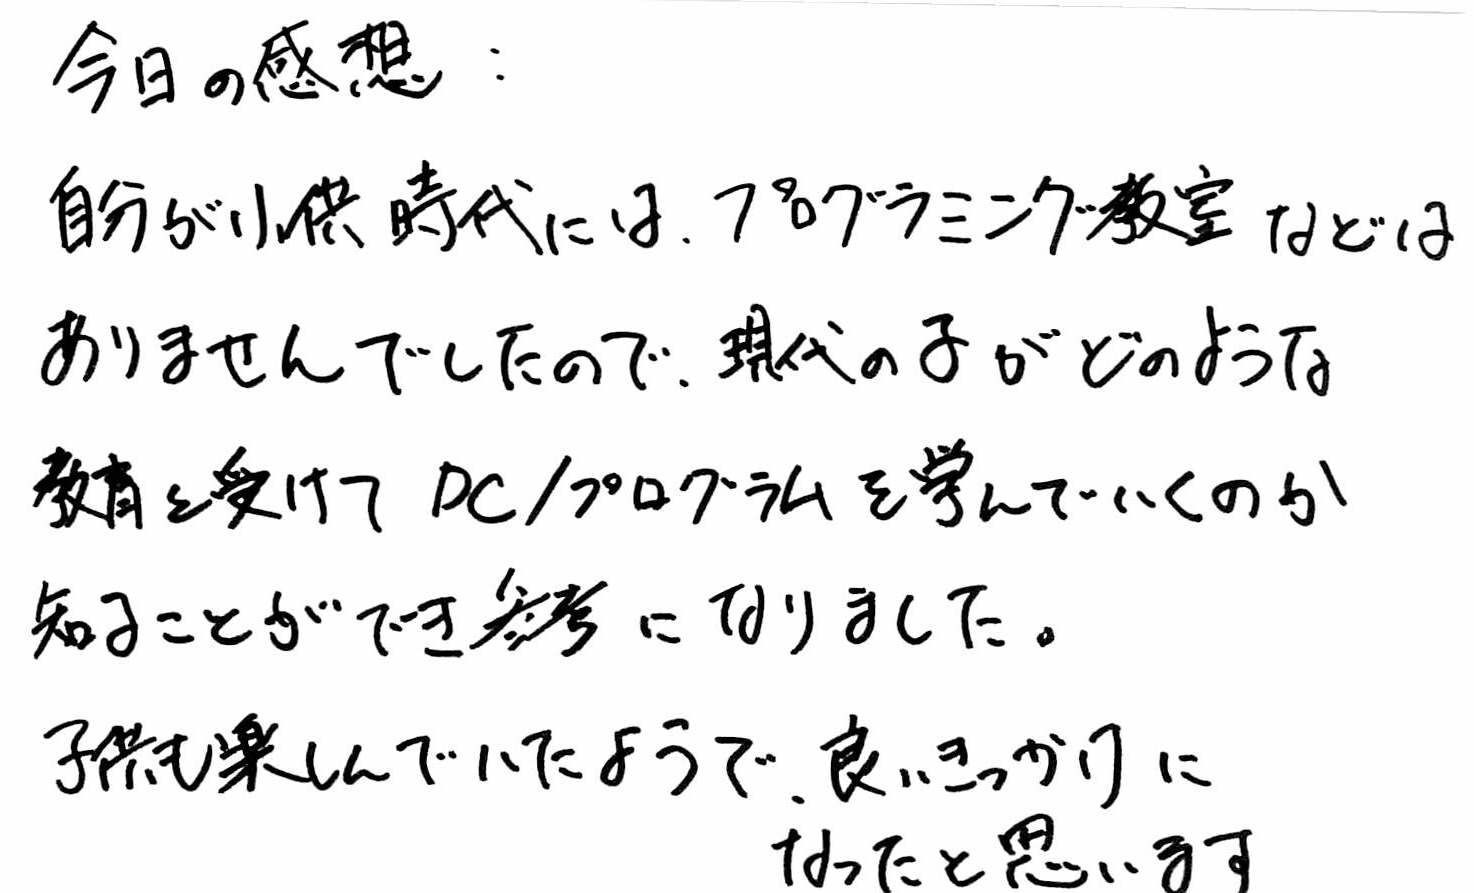 今日の感想:
自分が小供時代には、プログラミング教室などは
ありませんでしたので、現代の子がどのような
教育を受けてPC/プログラムを学んでいくのか
知ることができ参考になりました。
子供も楽しんでいたようで、良いきっかけに
なったと思います